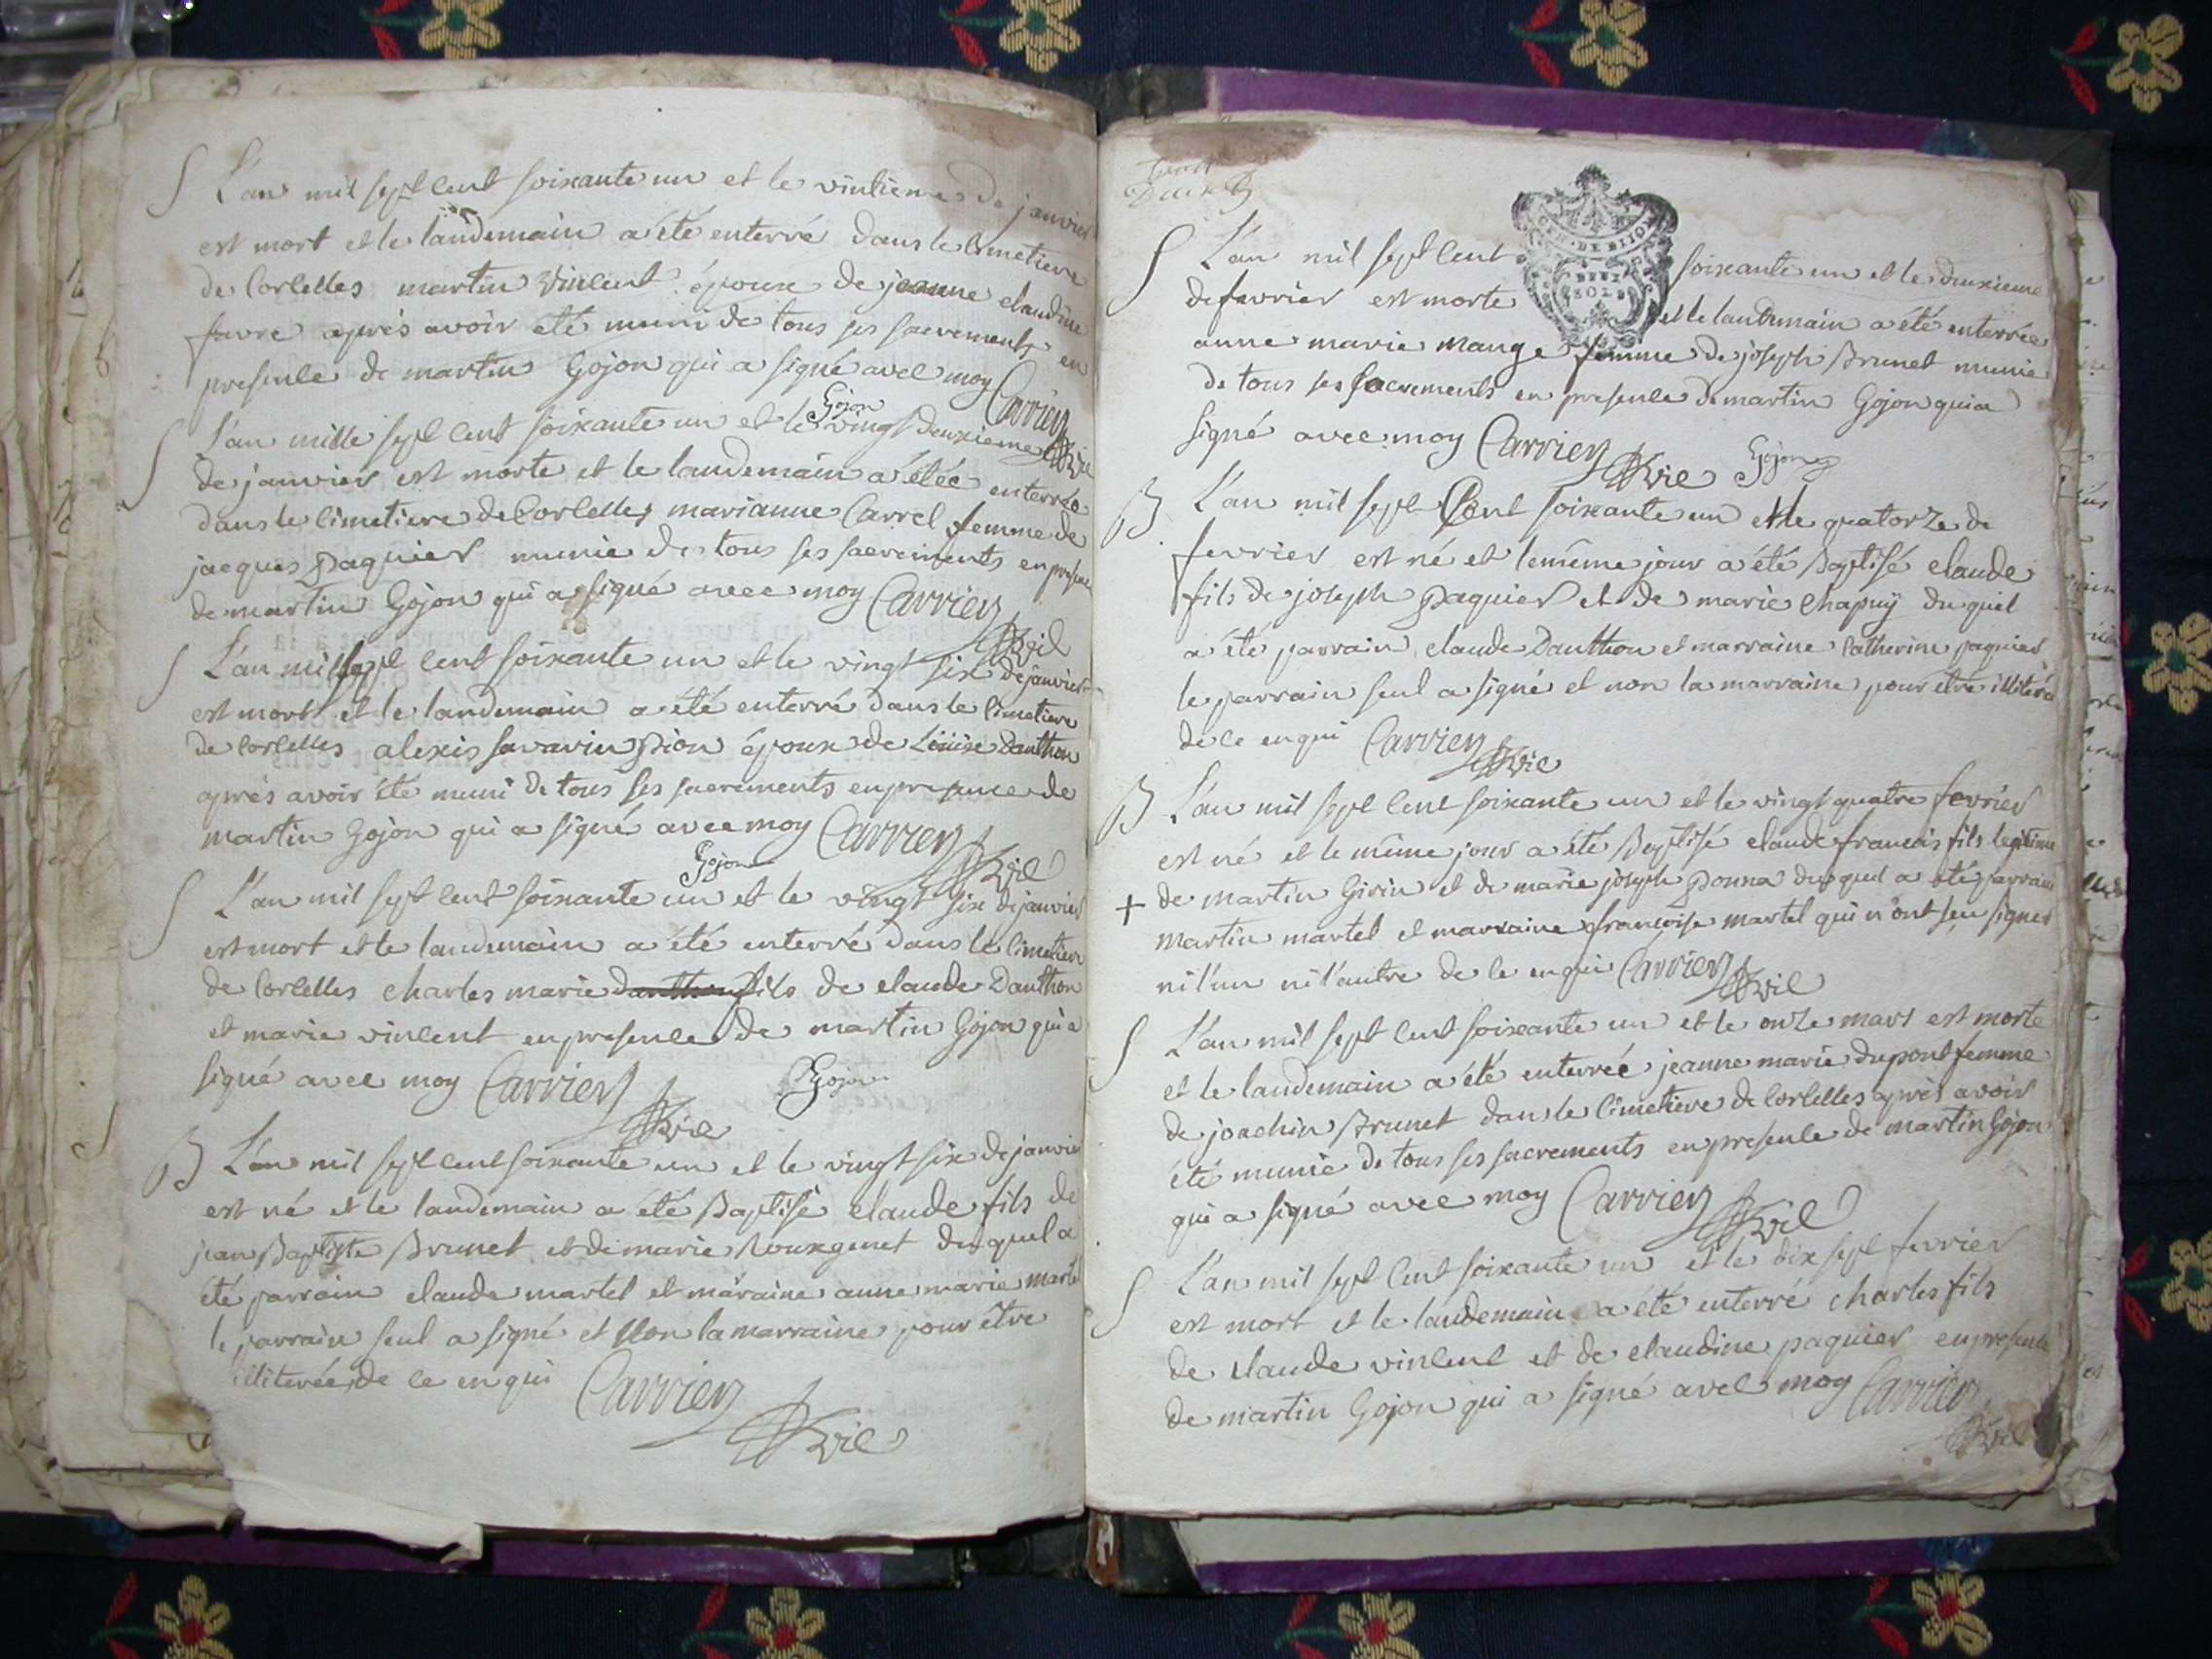 S L'an mil sept cent soixante un et le vintieme de janvier
est mort et le landemain a été enterré dans le cimetiere
de Corcelles martin vincent époux de jeanne claudine
favre aprés avoir été muni de tous ses sacrements en
presence de martin Gojon qui a signé avec moy Carrier
Gojon
S L'an mille sept cent soixante un et le vingt deuxieme
de janvier est morte et le landemain a étée enterrée
dans le cimetiere de Corcelles marianne Carrel femme de
jacques paquier munie de tous ses sacrements en presence
de martin Gojon qui a signé avec moy Carrier
vic
S L'an mil sept cent soixante un et le vingt six de janvier
est mort et le landemain a été enterré dans le cimetiere
de Corcelles alexis savarin pion époux de Louise Danthon
aprés avoir été muni de tous ses sacrements en presence de
martin Gojon qui a signé avec moy Carrier
Gojon vic
S L'an mil sept cent soixante un et le vingt six de janvier
est mort et le landemain a été enterré dans le cimetiere
de Corcelles charles marie danthon fils de claude Danthon
et marie vincent en presence de martin Gojon qui a
signé avec moy Carrier Gojon
vic
B L'an mil sept cent soixante un et le vingt six de janvier
est né et le landemain a été Baptisé claude fils de
jean Baptiste Brunet et de marie Rouxgenet duquel a
été parrain claude martel et maraine anne marie martel
le parrain seul a signé et non la marraine pour être
illiterée, de ce enqui Carrier
vic
GEN. DE DIJON
DEUX
SOLS
S L'an mil sept cent soixante un et le deuxieme
de favrier est morte et le landemain a été enterrée
anne marie mange femme de joseph Brunet munie
de tous ses sacrements en presence de martin Gojon qui a
signé avec moy Carrier vic Gojon
B L'an mil sept Cent soixante un et le quatorze de
fevrier est né et le même jour a été Baptisé claude
fils de joseph paquier et de marie chapuy du quel
a été parrain claude Danthon et marraine catherine paquier
le parrain seul a signé et non la marraine pour etre illiteré
de ce enqui Carrier vic
B L'an mil sept cent soixante un et le vingt quatre fevrier
est né et le même jour a été Baptisé claude francois fils legitime
+ de martin Girin et de marie joseph Donna duquel a été parrain
martin martel et marraine francoise martel qui n'ont seu signer
ni l'un ni l'autre de ce enqui Carrier vic
S L'an mil sept cent soixante un et le onze mars est morte
et le landemain a été enterrée jeanne marie dupont femme
de joachin Brunet dans le cimetiere de Corcelles aprés avoir
été munie de tous ses sacrements en presence de martin Gojon
qui a signé avec moy Carrier vic
S L'an mil sept Cent soixante un et le dix sept fevrier
est mort et le landemain a été enterré charles fils
de claude vincent et de claudine paquier en presence
de martin Gojon qui a signé avec moy Carrier
vic